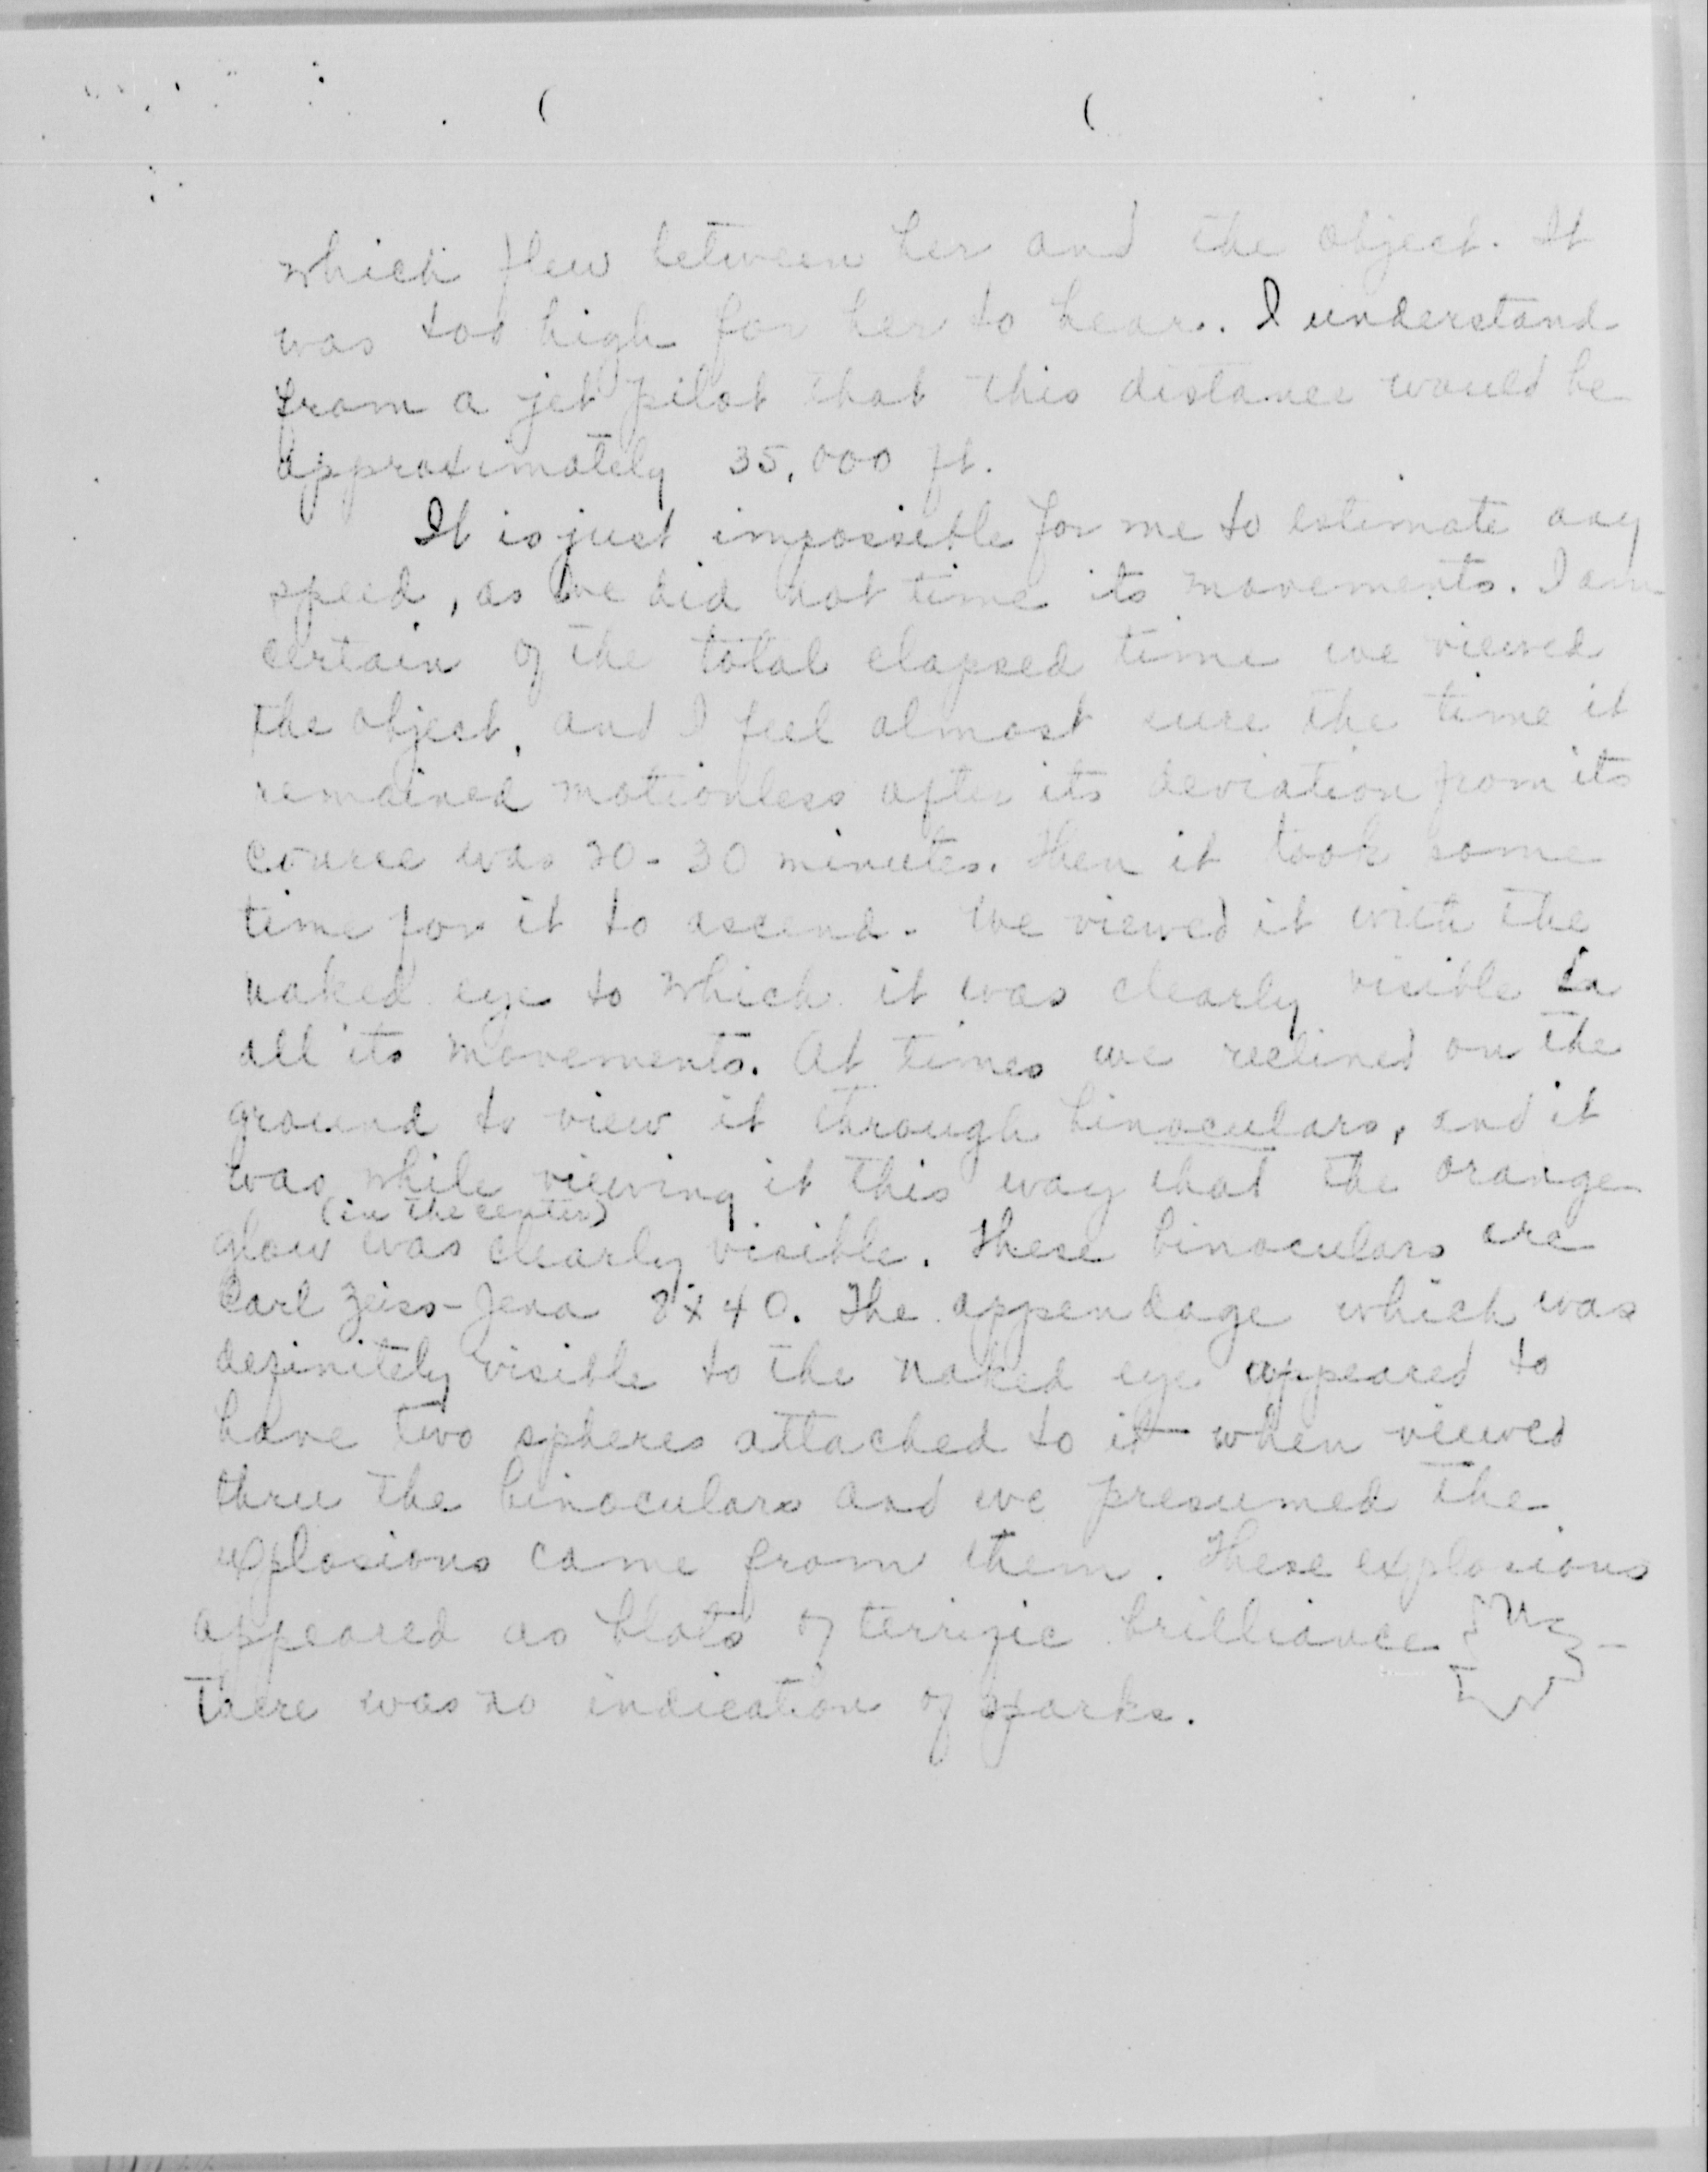 which flew between her and the object. It
was too high for her to hear. I understand
from a jet pilot that this distance would be
approximately 35,000 ft.
It is just impossible for me to estimate any
speed, as we did not time its movements. I am
certain of the total elapsed time we viewed
the object, and I feel almost sure the time it
remained motionless after its deviation from its
course was 20-30 minutes. Then it took some
time for it to ascend. We viewed it with the
naked eye to which it was clearly visible in
all its movements. At times we reclined on the
ground to view it through binoculars, and it
was while viewing it this way that the orange
(in the center)
glow was clearly visible. These binoculars are
Carl Zeiss-Jena 8x40. The appendage which was
definitely visible to the naked eye appeared to
have two spheres attached to it when viewed
thru the binoculars and we presumed the
explosions came from them. These explosions
appeared as blots of terrific brilliance
There was no indication of sparks.